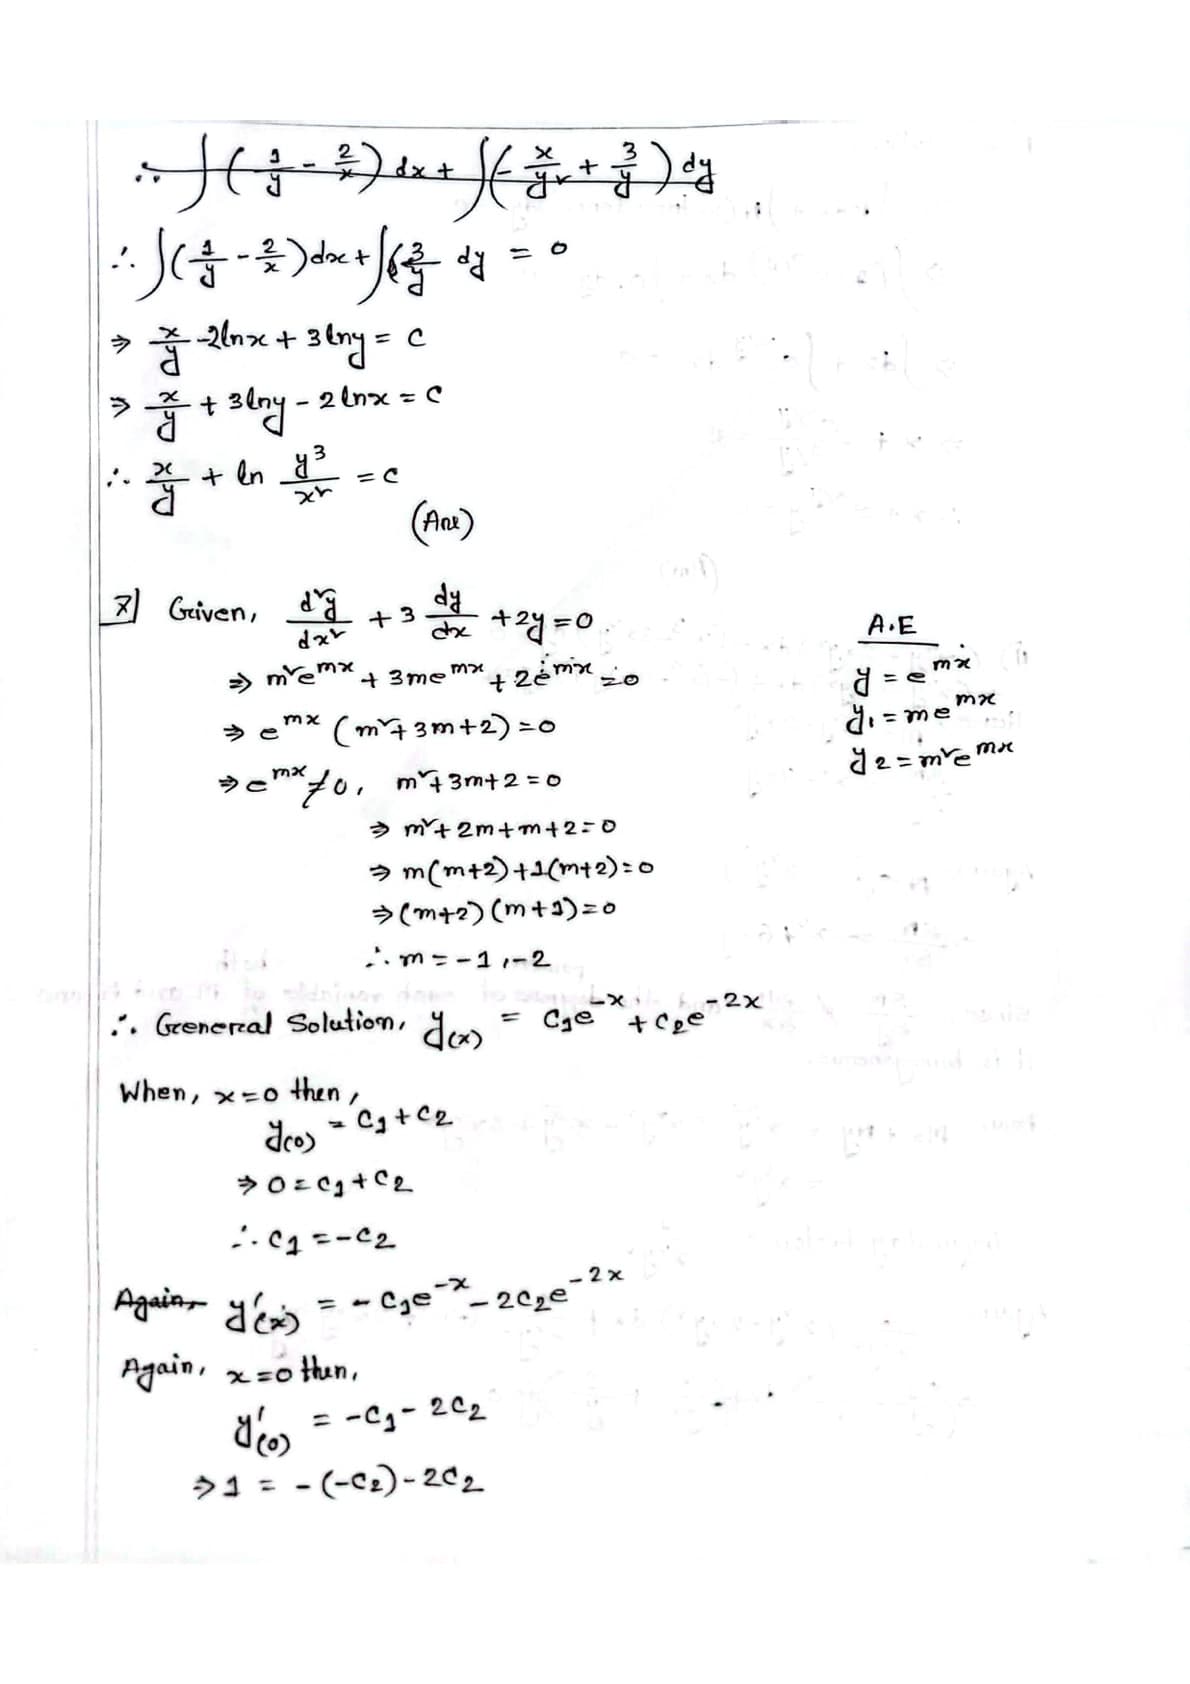 ∴ ∫(1/y - 2/x) dx + ∫(- x/y² + 3/y) dy
∴ ∫(1/y - 2/x) dx + ∫(3/y dy = 0
⇒ x/y - 2lnx + 3lny = c
⇒ x/y + 3lny - 2lnx = c
∴ x/y + ln y³/x² = c
(Ans)
7] Given, d²y/dx² + 3 dy/dx + 2y = 0
⇒ m²e^mx + 3me^mx + 2e^mx = 0
⇒ e^mx (m² + 3m + 2) = 0
⇒ e^mx ≠ 0, m² + 3m + 2 = 0
⇒ m² + 2m + m + 2 = 0
⇒ m(m+2) + 1(m+2) = 0
⇒ (m+2) (m+1) = 0
∴ m = -1, -2
A.E
y = e^mx
y₁ = me^mx
y₂ = m²e^mx
∴ General Solution, y(x) = c₁e^-x + c₂e^-2x
When, x = 0 then,
y(0) = c₁ + c₂
⇒ 0 = c₁ + c₂
∴ c₁ = -c₂
Again, y′(x) = - c₁e^-x - 2c₂e^-2x
Again, x = 0 then,
y′(0) = -c₁ - 2c₂
⇒ 1 = -(-c₂) - 2c₂